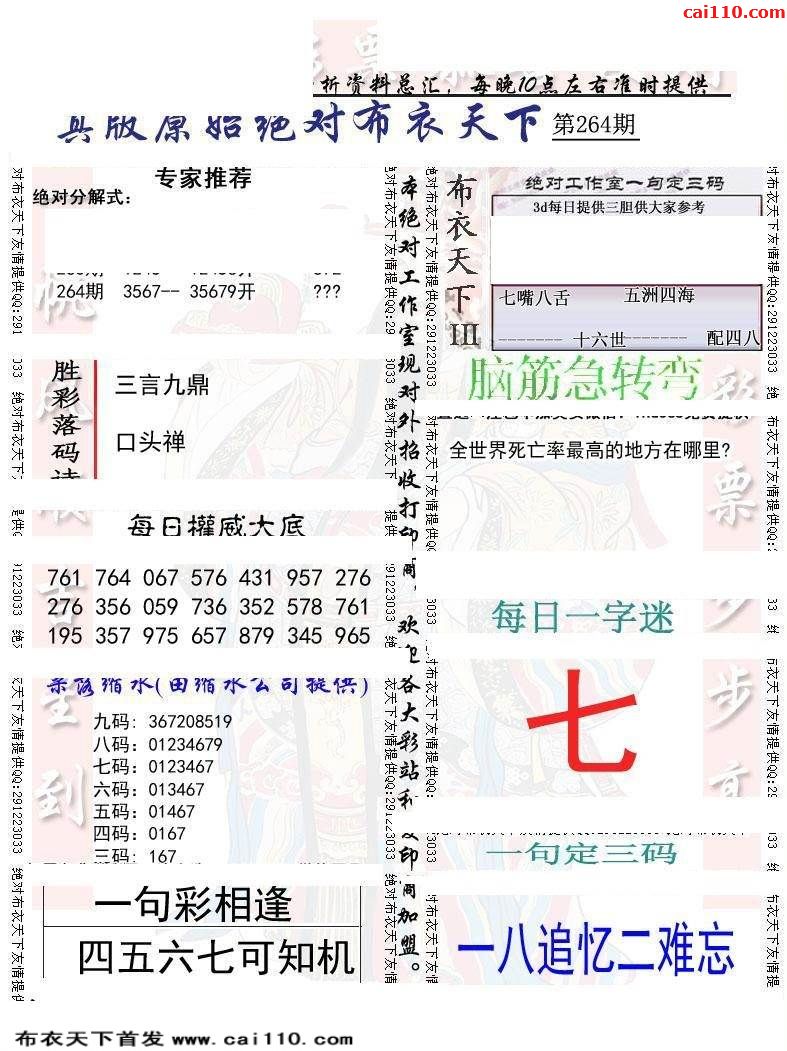 cai110.com
析资料总汇，每晚10点左右准时提供
真版原始绝对布衣天下 第264期
专家推荐
绝对分解式：
264期 3567-- 35679开 ???
胜彩落码诗
三言九鼎
口头禅
每日權威大底
761 764 067 576 431 957 276
276 356 059 736 352 578 761
195 357 975 657 879 345 965
缩水(田缩水公司提供)
九码: 367208519
八码: 01234679
七码: 0123467
六码: 013467
五码: 01467
四码: 0167
三码: 167
一句彩相逢
四五六七可知机
本绝对工作室现对外招收打印商，欢迎各大彩站和复印商加盟。
布衣天下III
绝对工作室一句定三码
3d每日提供三胆供大家参考
七嘴八舌 五洲四海
------- 十六世------- 配四八
脑筋急转弯
全世界死亡率最高的地方在哪里?
每日一字迷
七
一句定三码
一八追忆二难忘
对布衣天下友情提供QQ:291223033 绝对布衣天下友情提供QQ:291223033
布衣天下首发 www.cai110.com